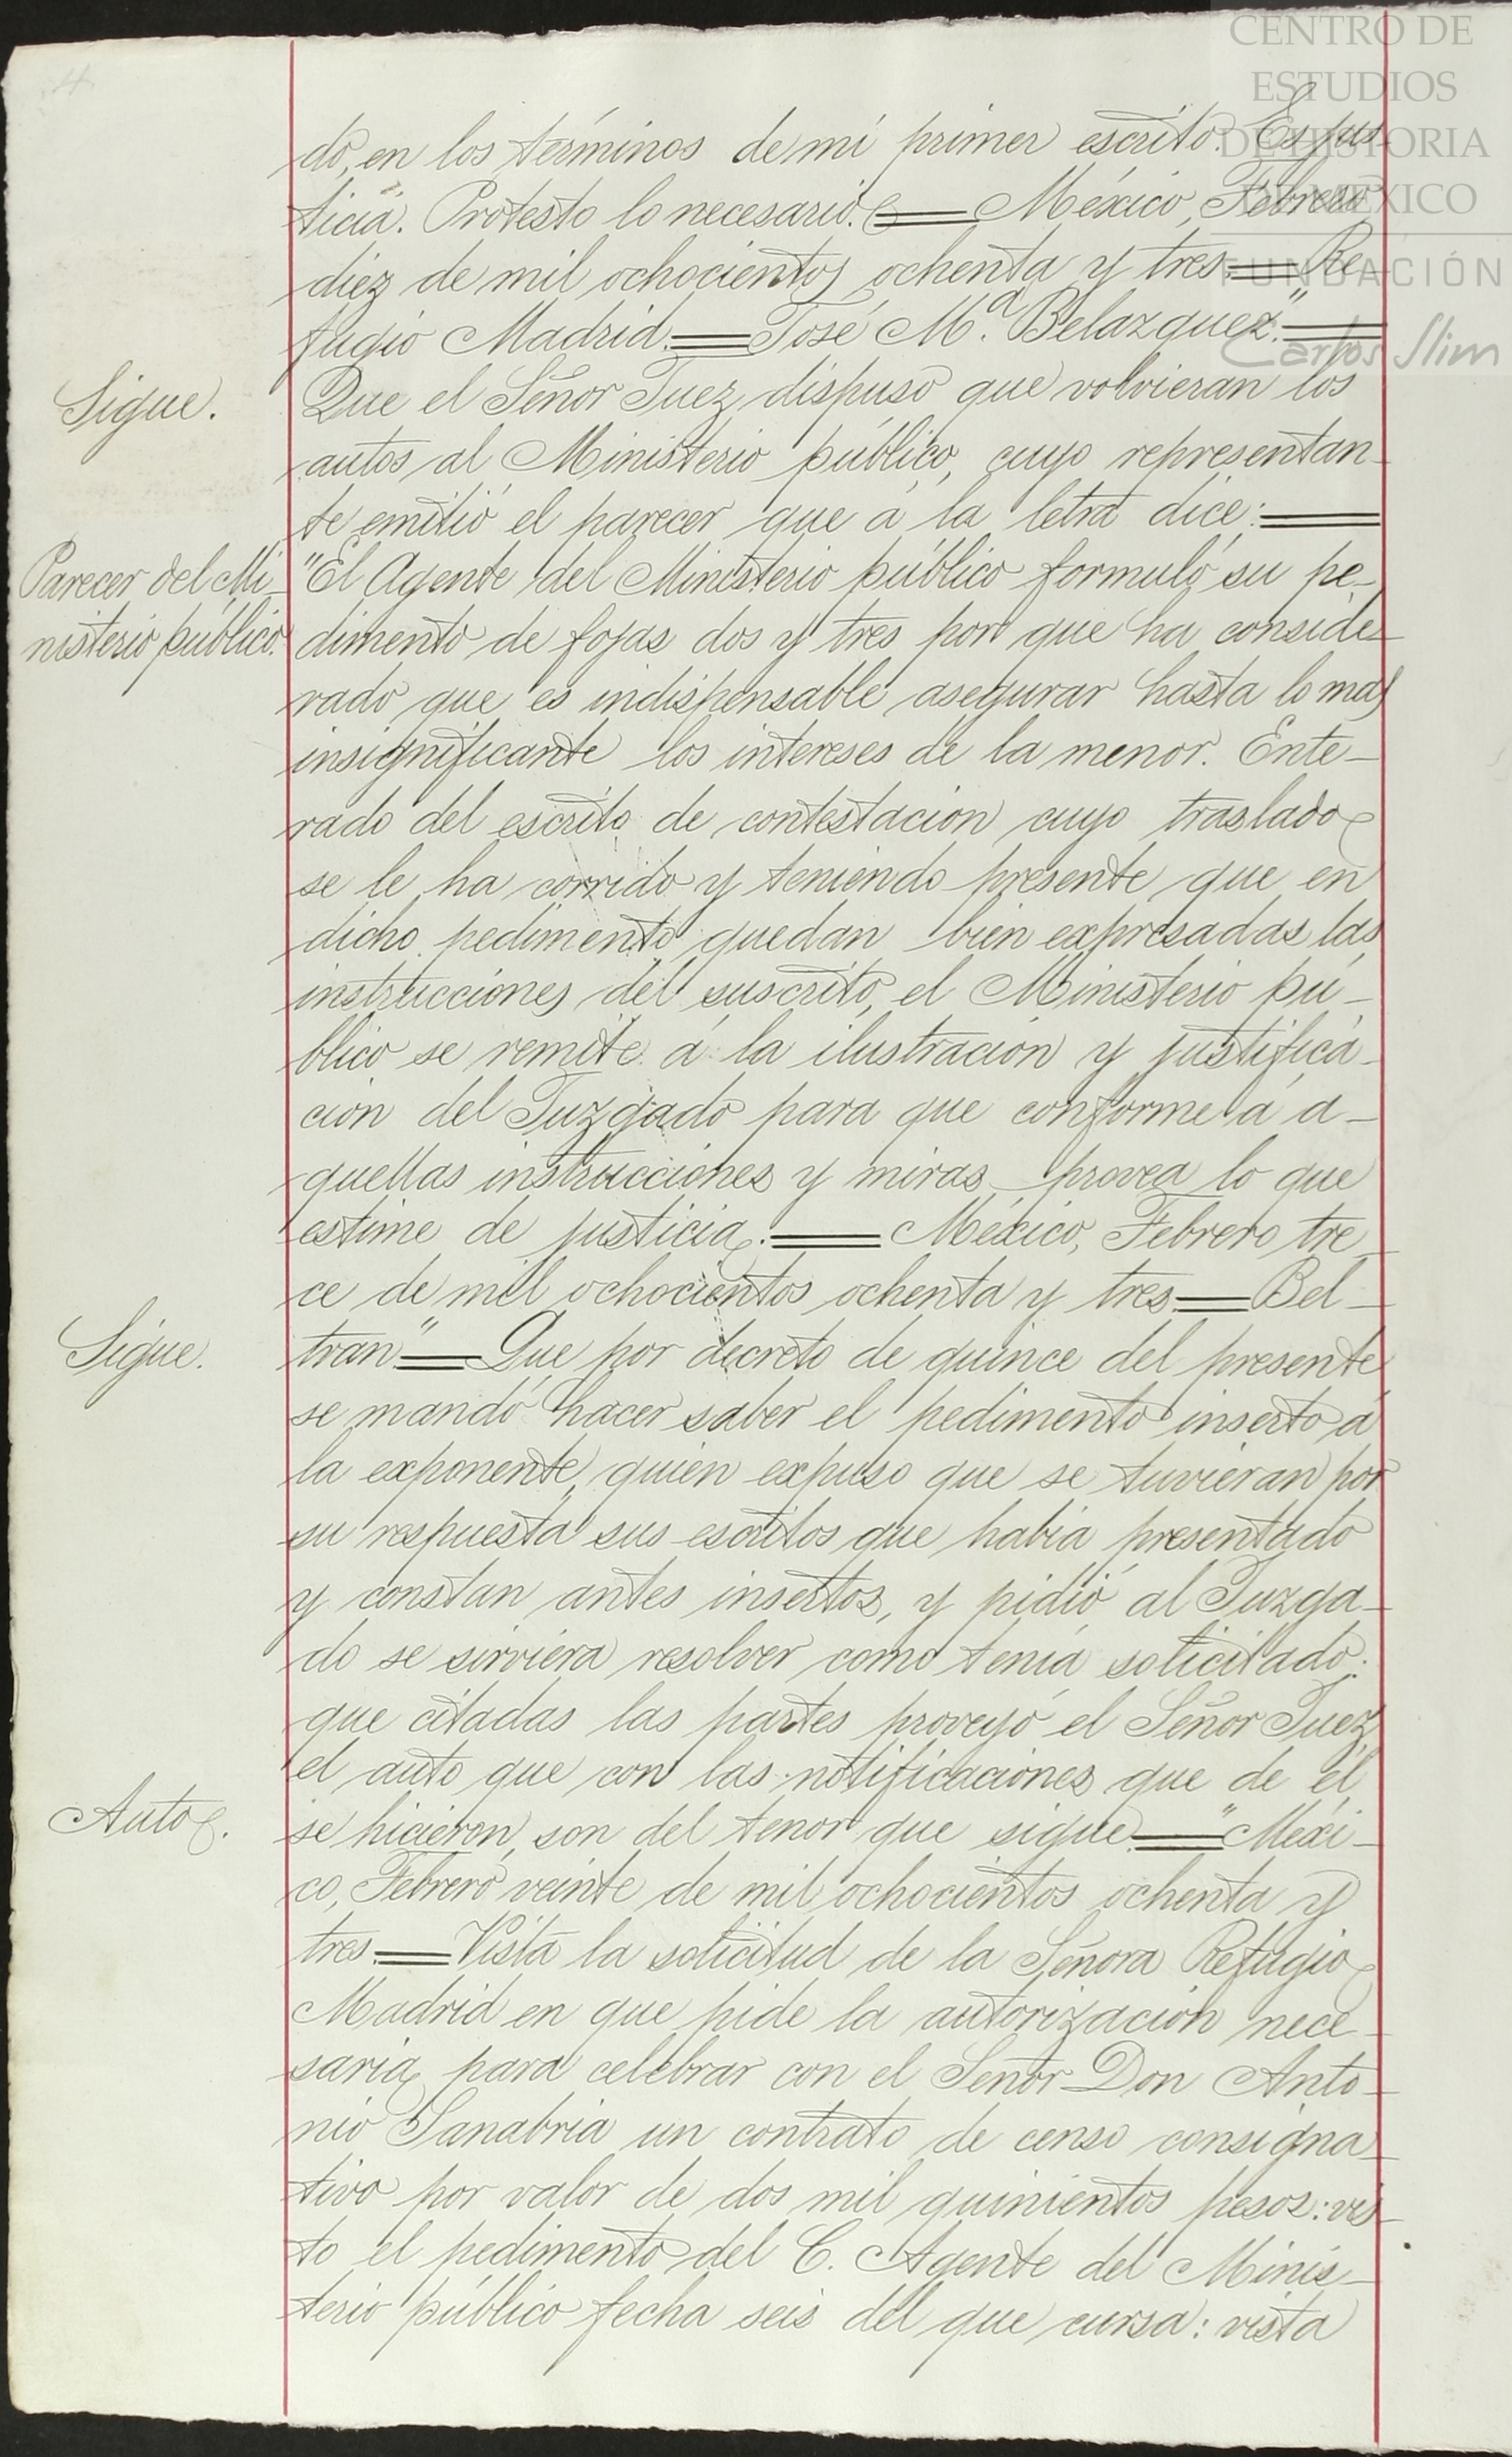 CENTRO DE
ESTUDIOS
DE HISTORIA
DE MÉXICO
FUNDACIÓN
Carlos Slim
do, en los términos de mi primer escrito. Es jus
ticia. Protesto lo necesario.══México, Febrero
diez de mil ochocientos ochenta y tres══Re
fugio Madrid.══José M.ª Belazquez."══
Sigue.
Que el Señor Juez dispuso que volvieran los
autos al Ministerio público, cuyo representan-
te emitió el parecer que á la letra dice:══
Parecer del Mi-
nisterio público.
"El Agente del Ministerio público formuló su pe-
dimento de fojas dos y tres por que ha conside-
rado que es indispensable asegurar hasta lo mas
insignificante los intereses de la menor. Ente-
rado del escrito de contestacion cuyo traslado
se le ha corrido y teniendo presente que en
dicho pedimento quedan bien expresadas las
instrucciones del suscrito, el Ministerio pú-
blico se remite á la ilustracion y justifica-
cion del Juzgado para que conforme á a-
quellas instrucciones y miras provea lo que
estime de justicia.══México, Febrero tre-
ce de mil ochocientos ochenta y tres══Bel-
Sigue.
tran"══Que por decreto de quince del presente
se mandó hacer saber el pedimento inserto á
la exponente, quien expuso que se tuvieran por
su respuesta sus escritos que habia presentado
y constan antes insertos, y pidió al Juzga-
do se sirviera resolver como tenia solicitado:
que citadas las partes proveyó el Señor Juez
el auto que con las notificaciones que de él
Auto.
se hicieron, son del tenor que sigue.══"Méxi-
co, Febrero veinte de mil ochocientos ochenta y
tres.══Vista la solicitud de la Señora Refugio
Madrid en que pide la autorizacion nece-
saria para celebrar con el Señor Don Anto-
nio Sanabria un contrato de censo consigna-
tivo por valor de dos mil quinientos pesos: vis-
to el pedimento del C. Agente del Minis-
terio público fecha seis del que cursa: vista